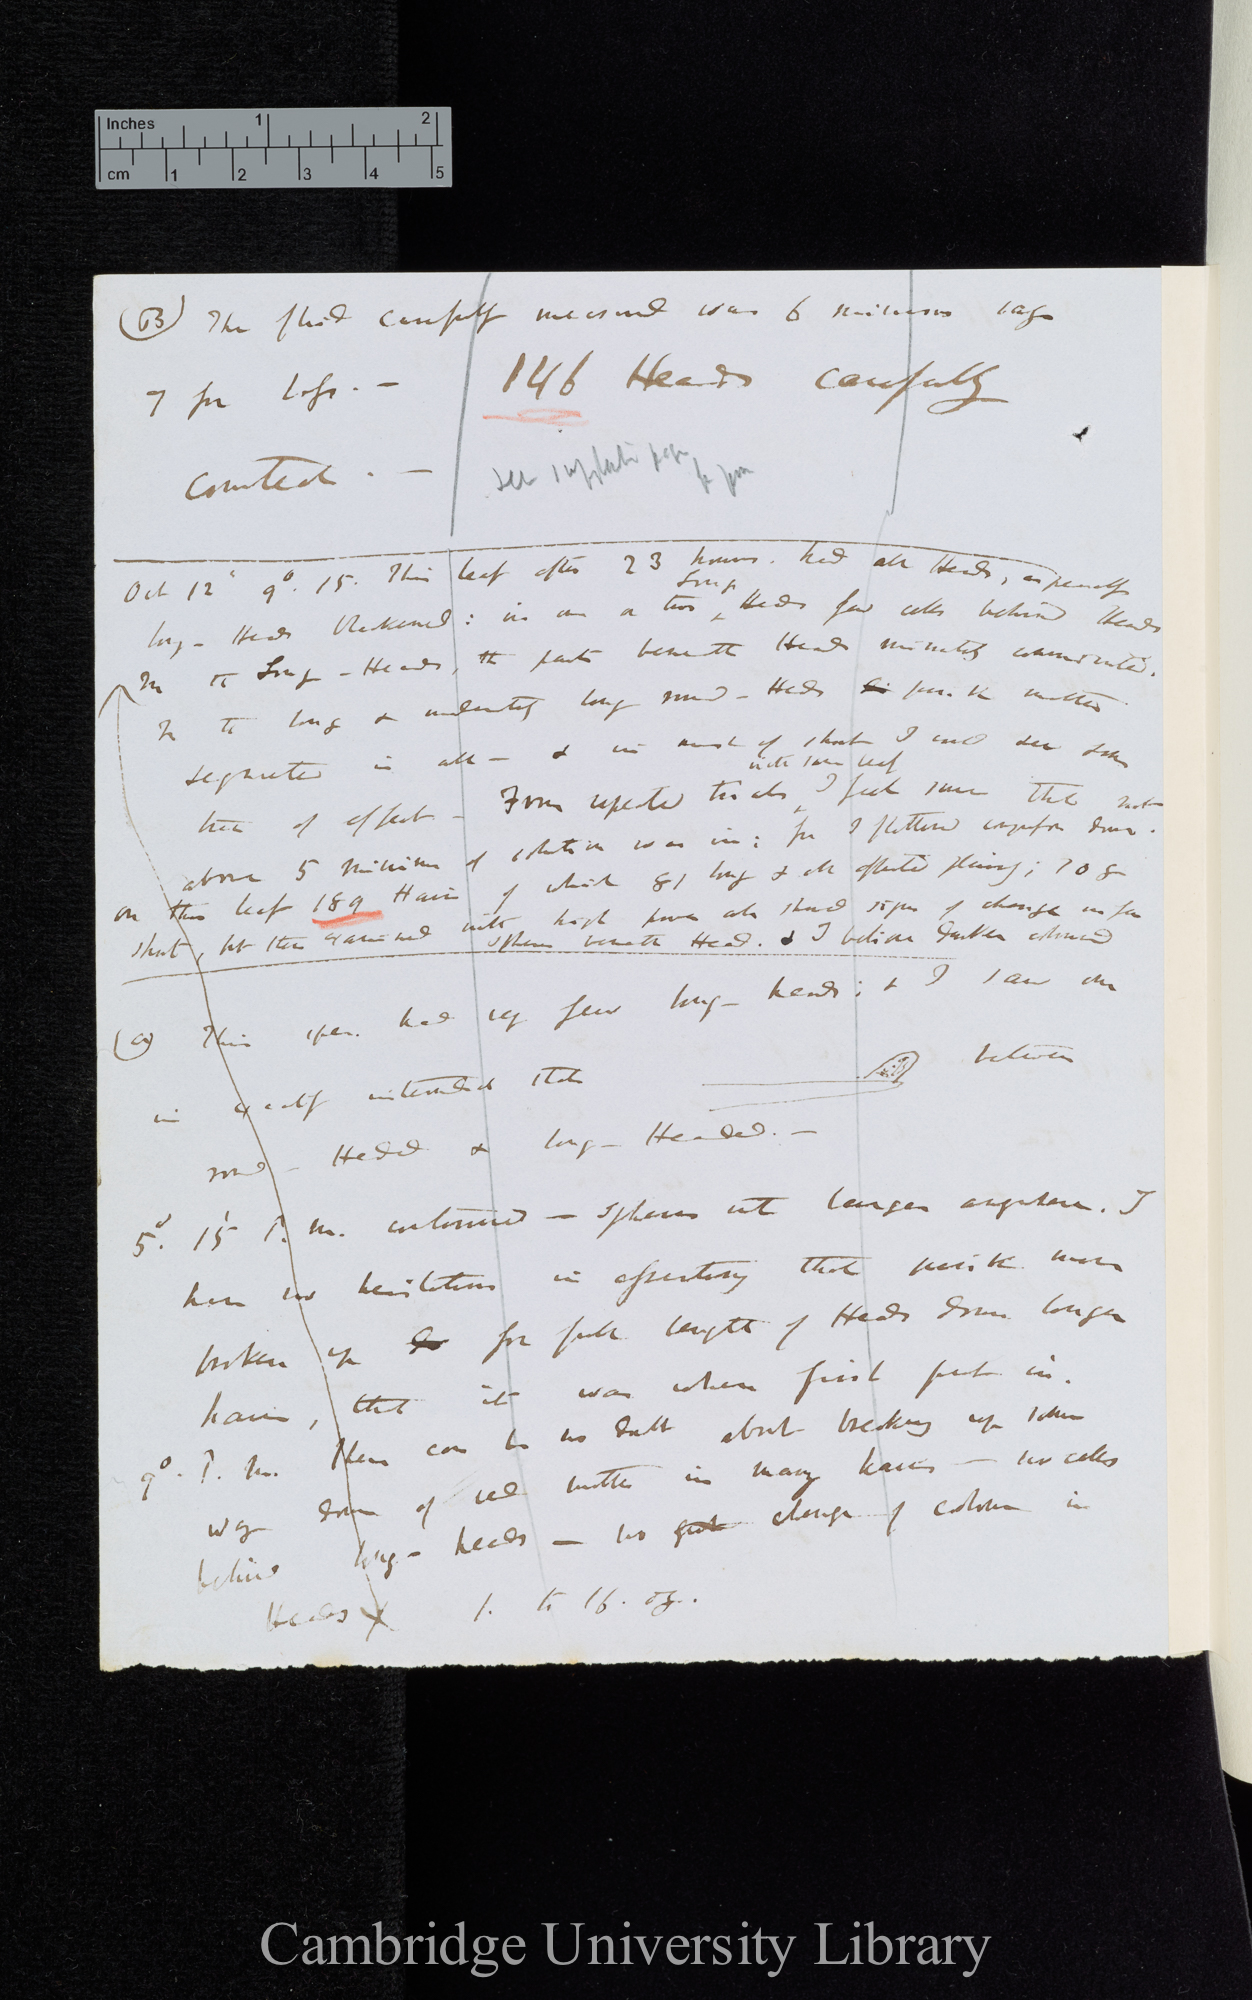 Inches 1 2
cm 1 2 3 4 5
(B) The fluid carefully measured was 6 minims say
7 for loss. — 146 Heads carefully
counted. —
see
Oct 12' 9°. 15. This leaf after 23 hours. had all Heads, especially
long-Heads blackened: in one or two long Heads few cells behind Heads
In the Long-Heads, the parts beneath Heads minutely
In the long & moderately long round-Heads pink matter
segregated in all — & in most of short I could see some
trace of effect — From repeated trials with same leaf I feel sure that not
above 5 minims of solution was in; for I
on this leaf 189 Hairs of which 81 long & all affected plainly; 108
short, but these examined with high power all showed signs of change in few
spheres beneath Head. & I believe darker coloured
(a) This spec. had very few long-heads; & I saw one
in exactly intermediate state between
round-Headed & long-Headed. —
5°. 15' P.m. coloured — spheres not larger anywhere. I
have no hesitation in asserting that pink more
broken up for full length of Heads down longer
hairs, that it was when first put in.
9°. P.m. There can be no doubt about breaking up some
way down of red matter in many hairs — no cells
behind long-heads — no great change of colour in
Heads 1. to 16. oz.
Cambridge University Library